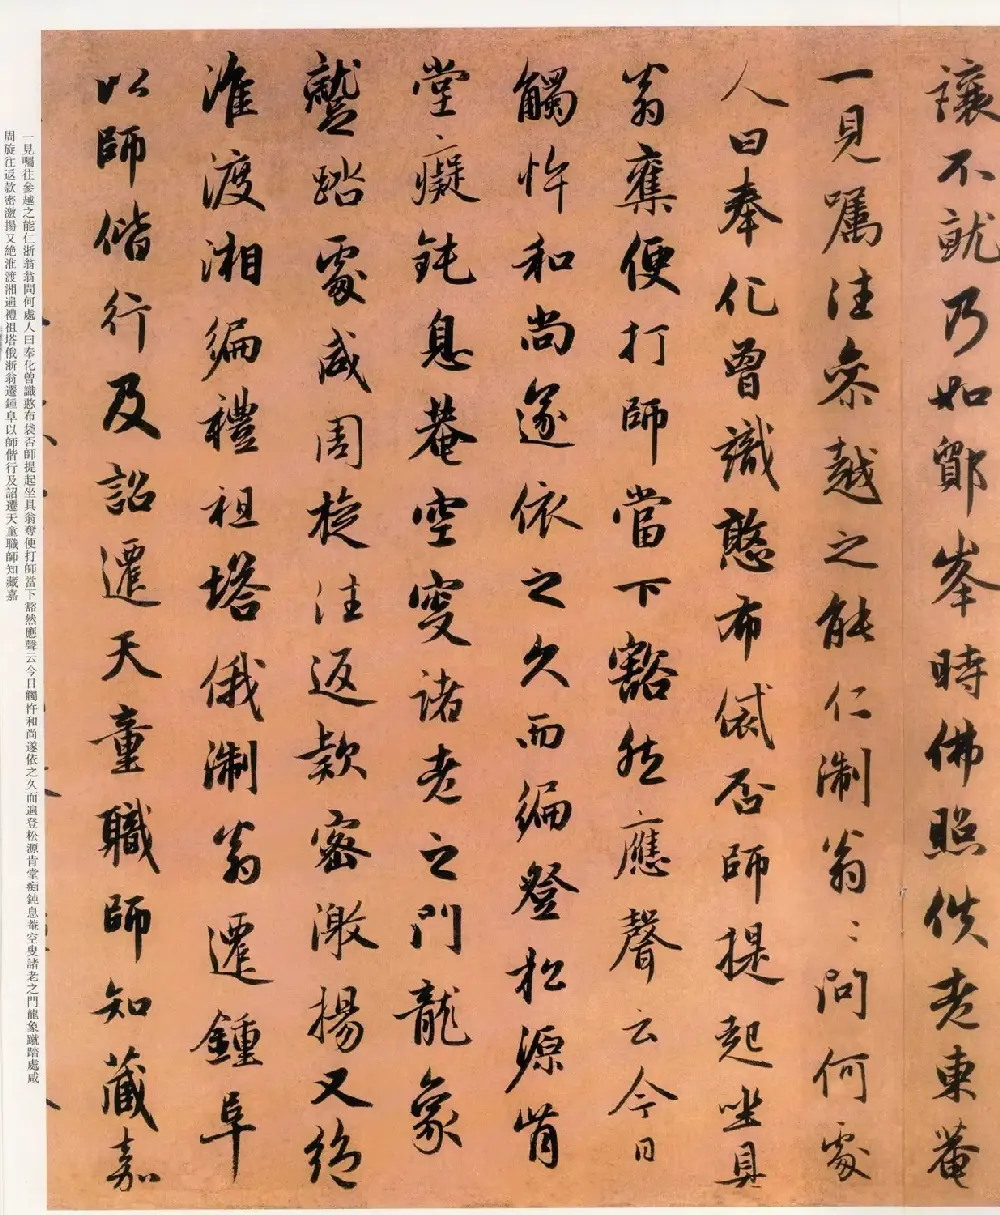 讓不就乃如鄮峯時佛照佚老東菴
一見囑往參越之能仁淛翁〻問何處
人曰奉化曾識憨布袋否師提起坐具
翁奪便打師當下豁然應聲云今日
觸忤和尚遂依之久而徧登松源肯
堂癡鈍息菴空叟諸老之門龍象
蹴踏處咸周旋往返款密激揚又絶
淮渡湘徧禮祖塔俄淛翁遷鍾阜
以師偕行及詔遷天童職師知藏嘉
一見囑往參越之能仁浙翁翁問何處人曰奉化曾識憨布袋否師提起坐具翁奪便打師當下豁然應聲云今日觸忤和尚遂依之久而遍登松源肯堂痴鈍息菴空叟諸老之門龍象蹴踏處咸
周旋往返款密激揚又絶淮渡湘遍禮祖塔俄浙翁遷鍾阜以師偕行及詔遷天童職師知藏嘉